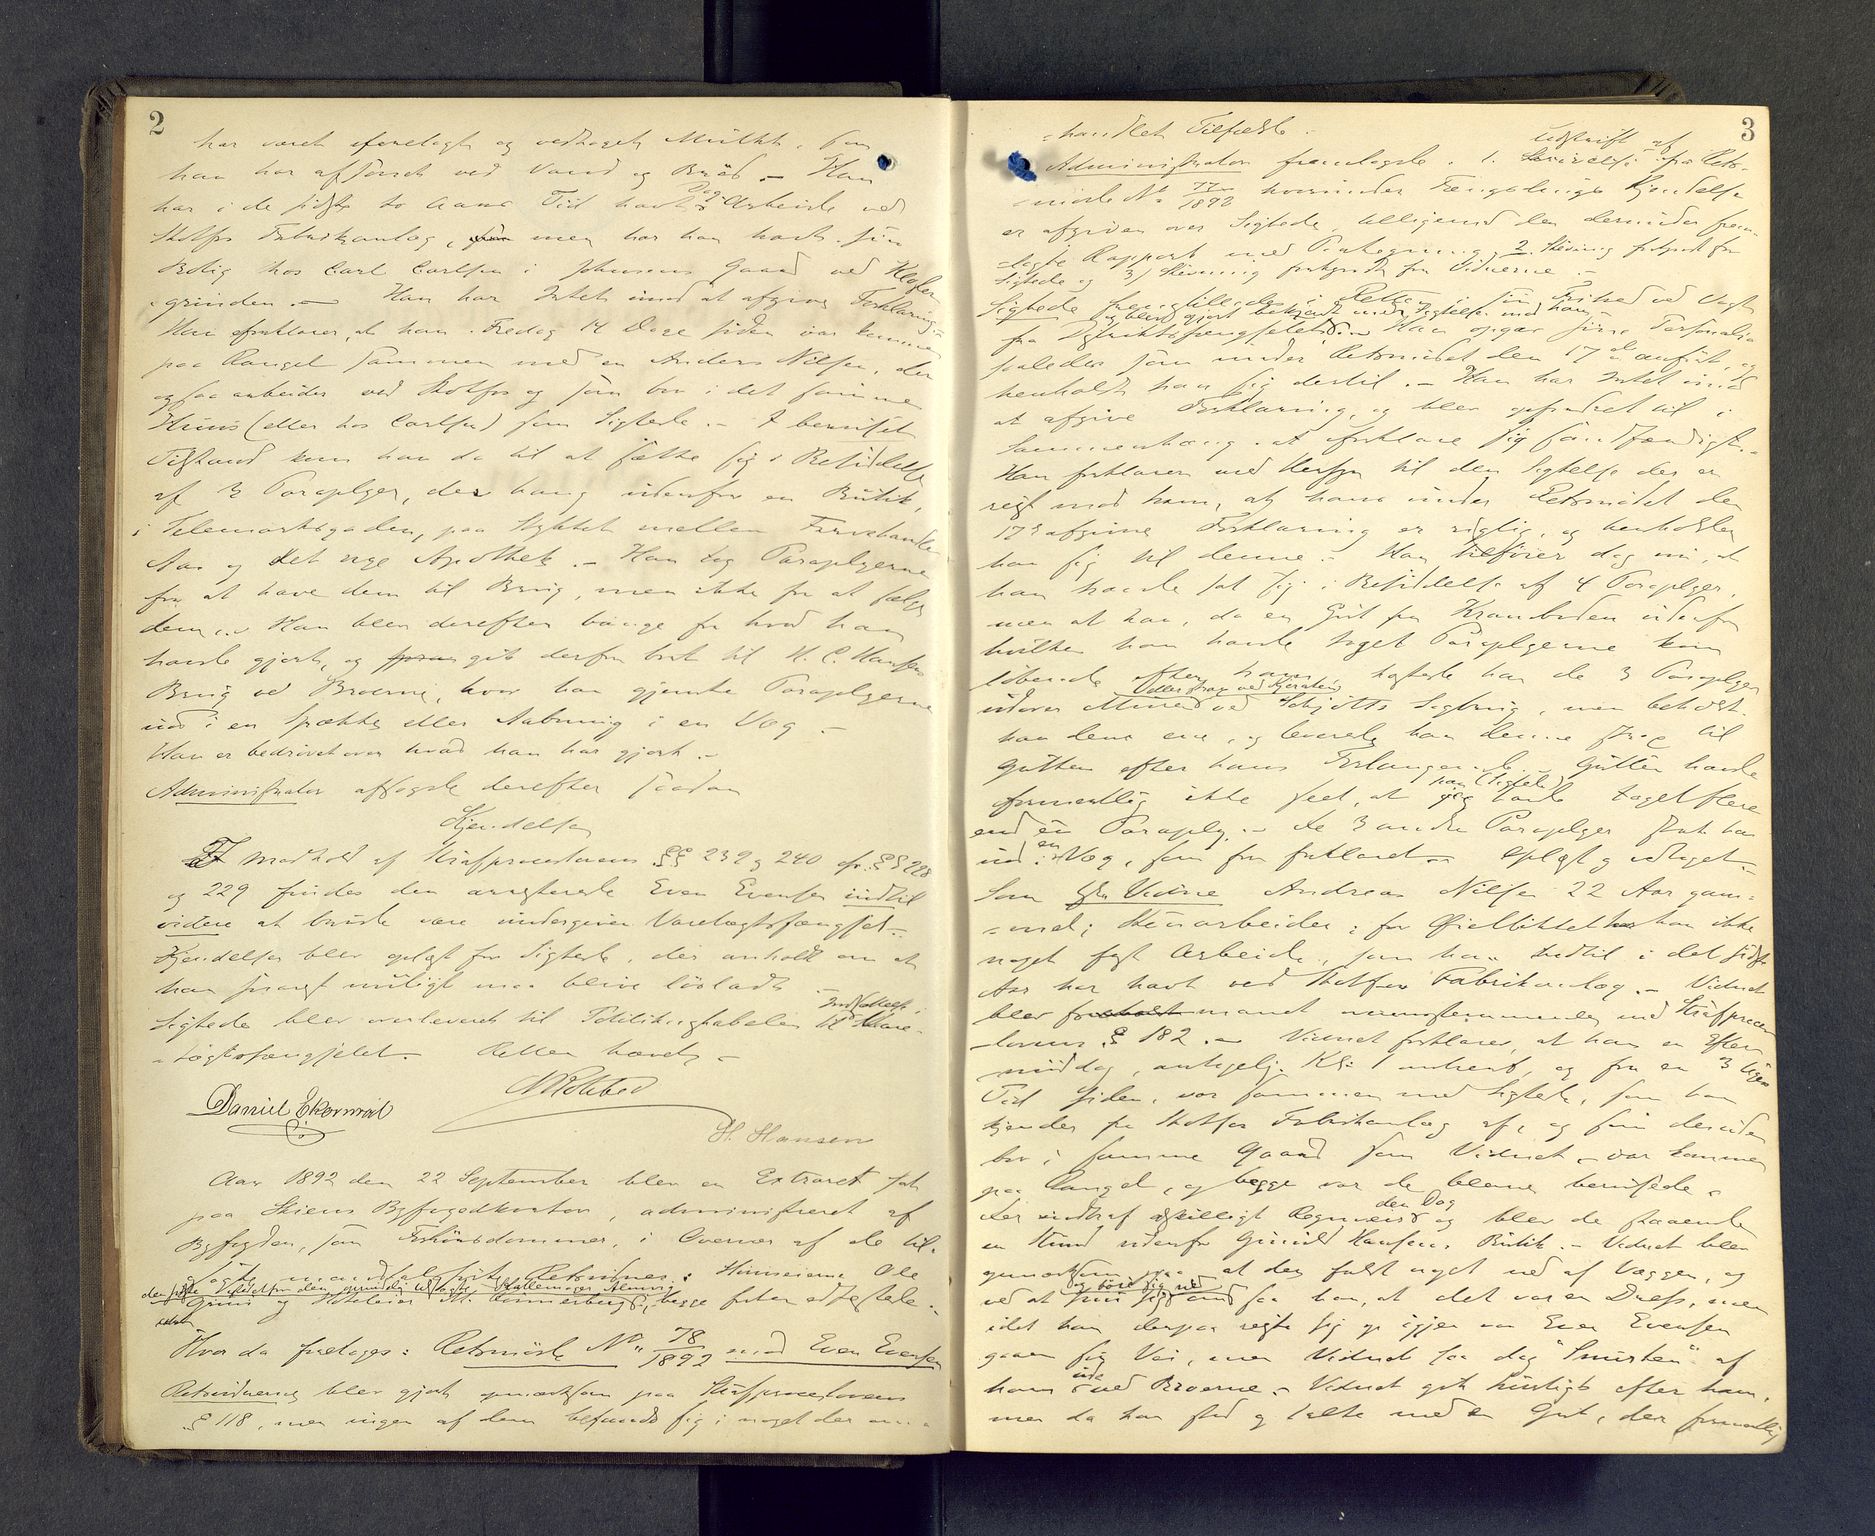 2
har været forelagt og vedtaget Mulkt, som
han har afsonet ved Vand og Brød. – Han
har i de sidste to Aars Tid havt Dag-Arbeide ved
Skotfos Fabrikanlæg, men har han havt sin
Bolig hos Carl Carlsen i Johnsens Gaard ved Kloster-
grinden. – Han har Intet imod at afgive Forklaring. –
Han forklarer, at han Fredag 14 Dage siden var kommen
paa Rangel sammen med en Anders Nilsen, der
ogsaa arbeider ved Skotfos og som bor i det samme
Huus (eller hos Carlsen) som Sigtede. – I beruset
Tilstand kom han da til at sætte sig i Besiddelse
af 3 Paraplyer, der hang udenfor en Butik
i Telemarksgaden, paa Stykket mellem Farvehandler
Aas og det nye Apothek. – Han tog Paraplyerne
for at have dem til Brug, men ikke for at sælge
dem. – Han blev derefter bange for hvad han
havde gjort, og gik derfra bort til H. C. Hansens
Brug ved Broerne, hvor han gjemte Paraplyerne
ind i en Sprække eller Aabning i en Væg. –
Han er bedrøvet over hvad han har gjort. –
Administrator afsagde derefter saadan
Kjendelse
I Medhold af Straffeprocesslovens §§ 239 og 240 cfr. §§ 228
og 229 findes den arresterede Even Evensen indtil
videre at burde være undergiven Varetægtsfængsel. –
Kjendelsen blev oplæst for Sigtede, der anholdt om at
han snarest muligt maa blive løsladt. –
Sigtede blev overleveret til Politikonstabelen til Indsættelse i Vare-
tægtsfængslet. – Retten hævet. –
Daniel Ekornrød
H. Hansen
Aar 1892 den 22 September blev en Extraret sat
paa Skiens Byfogedkontor, administreret af
Byfogden, som Forhørsdommer, i Overvær af de til-
kaldte Retsvidner: Huuseierne Ole
Gruus og begge forhen edfæstede. –
Hvor da foretoges: Retsmøde No. 78/1892 mod Even Evensen
Retsvidnerne blev gjort opmærksom paa Straffeprocesslovens
§ 118, men ingen af dem befandt sig i noget der om-
3
-handlet Tilfælde.
Administrator fremlagde. 1. Udskrift af Rets-
møde No 77/1892 hvorunder Fængslings Kjendelse
er afgiven over Sigtede, alligemed den derunder frem-
lagte Rapport med Paategning, 2. Stevning forkyndt for
Sigtede og 3) Stevning forkyndt for Vidnerne. –
Sigtede fremstilledes i Retten i sin Frihed ved Vagt
og blev gjort bekjendt med Sigtelsen mod ham
fra Distriktsfængslet. – Han opgav sine Personalia
saaledes som under Retsmødet den 17de anført, og
henholdt han sig dertil. – Han har Intet imod
at afgive Forklaring, og blev opfordret til i
Sammenhæng at forklare sig sandfærdigt. –
Han forklarer med Hensyn til den Sigtelse der er
reist mod ham, at hans under Retsmødet den
17de afgivne Forklaring er rigtig, og henholder
han sig til denne. – Han tilføier dog nu, at
han havde sat sig i Besiddelse af 4 Paraplyer,
men at han, da en Gut fra Kramboden udenfor
hvilken han havde taget Paraplyerne kom
løbende efter ham, kastede han de 3 Paraplyer
ved Schjøtts Sagbrug, men beholdt
han den ene, og leverede han denne strax til
Gutten efter hans Forlangende. – Gutten havde
formentlig ikke seet, at han (Sigtede) havde taget flere
end én Paraply. – De 3 andre Paraplyer stak han
ind i en Væg, som før forklaret. – Oplæst og vedtaget. –
Som 1ste Vidne Andreas Nilsen 22 Aar gam-
mel; Steenarbeider; for Øieblikket har han ikke
noget fast Arbeide, som han indtil i det sidste
Aar har havt ved Skotfos Fabrikanlæg. – Vidnet
blev formanet overensstemmende med Straffeprocess-
lovens § 182. – Vidnet forklarer, at han en Efter-
middag, antagelig Kl: 1 omtrent, og for en 3 Ugers
Tid siden, var sammen med Sigtede, som han
kjender fra Skotfos Fabrikanlæg af, og som desuden
bor i samme Gaard som Vidnet – var kommen
paa Rangel, og begge var de blevne berusede.
Der indtraf adskilligt Regnveir den Dag og blev de staaende
en Stund udenfor Gunild Hansens Butik. – Vidnet blev
opmærksom paa at der faldt noget ned af Væggen, og
ved at bøie sig ned saa han, at det var en Dress, men
idet han derpaa reiste sig op igjen var Even Evensen
gaaet sin Vei, men Vidnet saa dog "Snurten" af
ham ude ved Broerne. – Vidnet gik hurtigt efter ham,
men da han stod og talte med en Gut, der formentlig